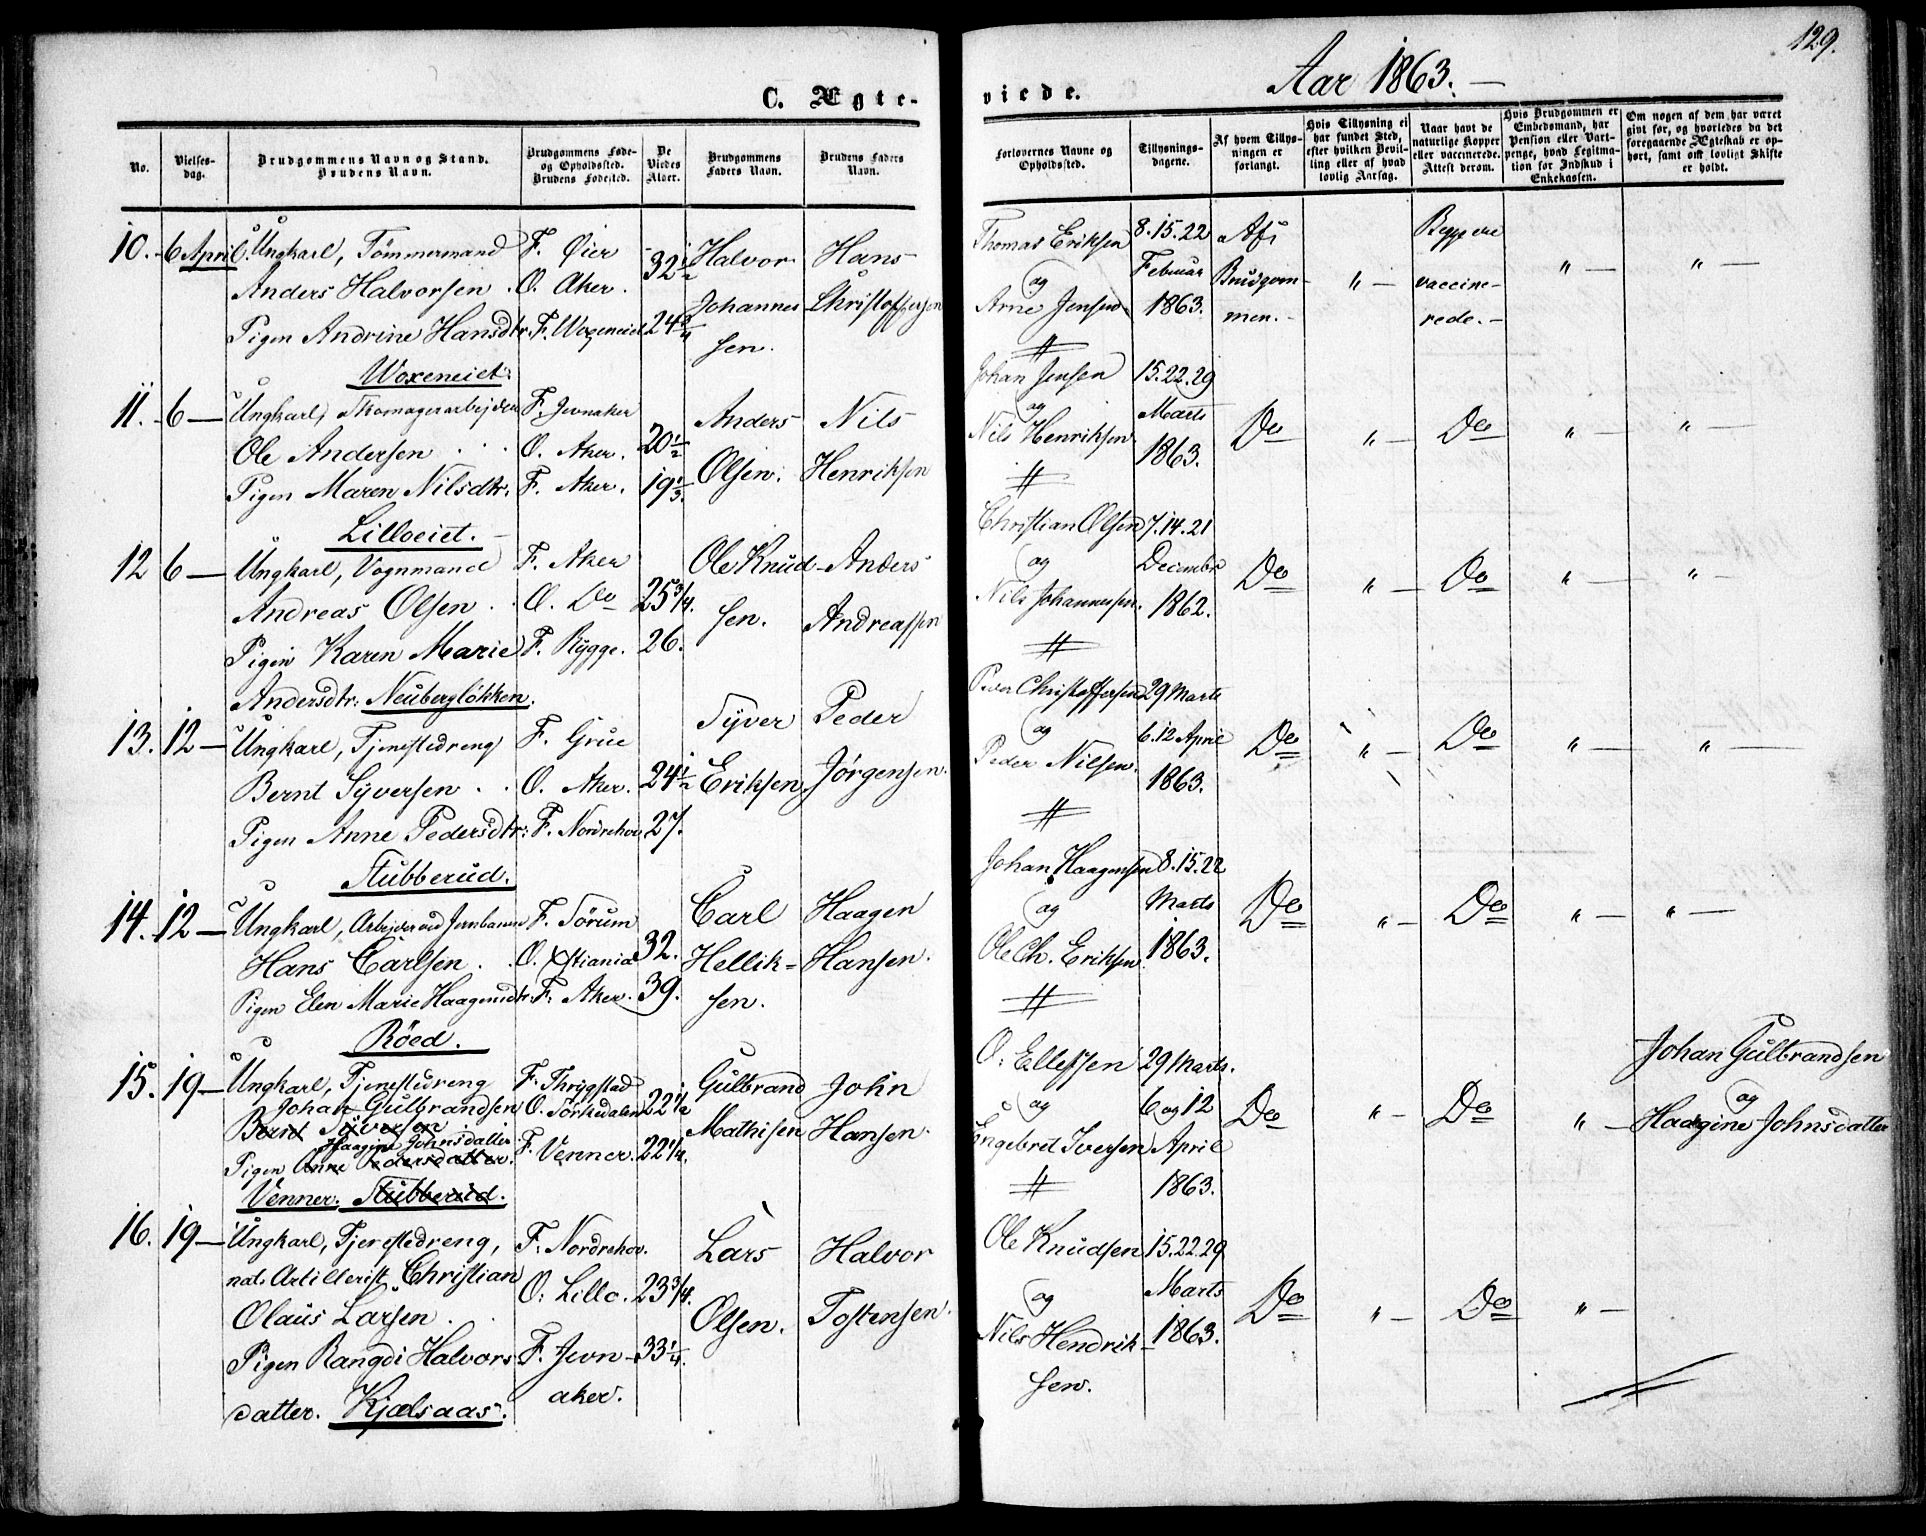 129.
C. Ægte-
viede.
Aar 1863.
No.
Vielses-
dag.
Brudgommens Navn og Stand.
Brudens Navn.
Brudgommens Føde-
og Opholdssted.
Brudens Fødested.
De
Viedes
Alder.
Brudgommens
Faders Navn.
Brudens Faders
Navn.
Forlovernes Navne og
Opholdssted.
Tillysnings-
dagene.
Af hvem Tillys-
ningen er
forlangt.
Hvis Tillysning ei
har fundet Sted,
efter hvilken Bevil-
ling eller af hvad
lovlig Aarsag.
Naar havt de
naturlige Kopper
eller vaccinerede.
Attest derom.
Hvis Brudgommen er
Embedsmand, har
Pension eller Vart-
penge, hvad Legitima-
tion for Indskud i
Enkekassen.
Om nogen af dem har været
givt før, og hvorledes da det
foregaaende Ægteskab er op-
hørt, samt om lovligt Skifte
er holdt.
10. 6 April. Ungkarl, Tømmermand F. Øier 32½ Halvor Hans
Anders Halvorsen . O. Aker. Johannes- Christoffersen
Pigen Andrine Hansdtr. F. Woxeneiet 24¾ sen.
Woxeneiet:
Thomas Eriksen 8.15.22 Af Begge ere
og Februar Brudgom- " — vaccine- " — " —
Arne Jensen 1863. men. - rede. -
11. 6 — Ungkarl, Skomagerarbejder F. Jevnaker Anders Nils
Ole Andersen . . O. Aker. 20½ Olsen. Henriksen
Pigen Maren Nilsdtr. F. Aker. 19⅓.
Lilloeiet. -
Johan Jensen 15.22.29
og Marts Do " — Do " — " —
Nils Henriksen 1863.
12 6 — Ungkarl, Vognmand F. Aker Ole Knud- Anders
Andreas Olsen . . O. Do 25¾. sen. Andreassen
Pigen Karen Marie F. Rygge. 26.
Andersdtr: Neubergløkken.
Christian Olsen 7.14.21
og Decembr Do " — Do " — " —
Nils Johannessen. 1862.
13. 12 — Ungkarl, Tjenestedreng F. Grue Syver Peder
Bernt Syversen . . O. Aker. 24½ Eriksen Jørgensen.
Pigen Anne Pedersdtr: F. Nordrehov 27.
Stubberud.
Christoffersen 29 Marts
og 6.12 April Do " — Do " — " —
Peder Nilsen. 1863.
14. 12 — Ungkarl, Arbejder ved Jernbanen F. Sørum Carl Haagen
Hans Carlsen . . O. Xstiania 32. Hellik- Hansen.
Pigen Elen Marie Haagensdtr: F. Aker. 39. sen.
Røed.
Johan Haagensen 8.15.22
og Marts Do " — Do " — " —
Ole Ch. Eriksen 1863.
15. 19 — Ungkarl, Tjenestedreng F. Thrygstad 22½ Gulbrand John
Johan Gulbrandsen O. Sørkedalen Mathisen Hansen.
Bernt Syversen
Haagine Johnsdatter
Pigen Anne Pedersdatter. F. Venner. 22¼.
Venner. Stubberud.
O. Ellefsen 29 Marts. Johan Gulbrandsen
og 6 og 12 Do " — Do " — og
Engebret Iversen April Haagine Johnsdatter
1863.
16. 19 — Ungkarl, Tjenestedreng, F. Nordrehov. Lars Halvor
nat. Artillerist Christian O. Lillo. 23¾. Olsen. Tostensen.
Olaus Larsen .
Pigen Rangdi Halvors- F. Jevn- 33¼.
datter. Kjælsaas. aker.
Ole Knudsen 15.22.29
og Marts Do " — Do " —
Nils Hendrik- 1863.
sen.